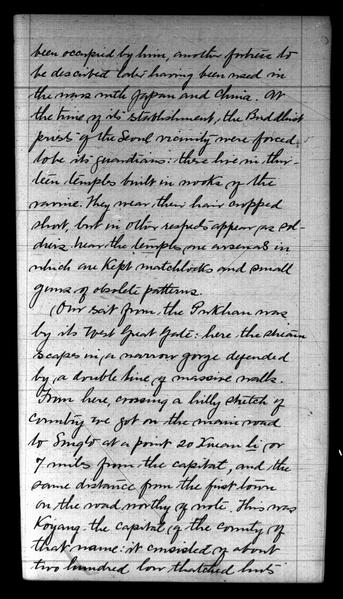 been occupied by him, another fortress to
be described later having been used in
the wars with Japan and China. At
the time of its establishment, the Buddhist
priests of the Seoul vicinity were forced
to be its guardians: these live in thir-
teen temples built in nooks of the
ravine. They wear their hair cropped
short, but in other respects appear as sol-
diers. Near the temples are arsenals in
which are Kept matchlocks and small
guns of obsolete patterns.
Our exit from the Pukhan was
by its West Great Gate: here the stream
escapes in a narrow gorge defended
by a double line of massive walls.
From here, crossing a hilly stretch of
country we got on the main road
to Songdo at a point 20 Korean li or
7 miles from the capital, and the
same distance from the first town
on the road worthy of note. This was
Koyang the capital of the county of
that name: it consisted of about
two hundred low thatched huts